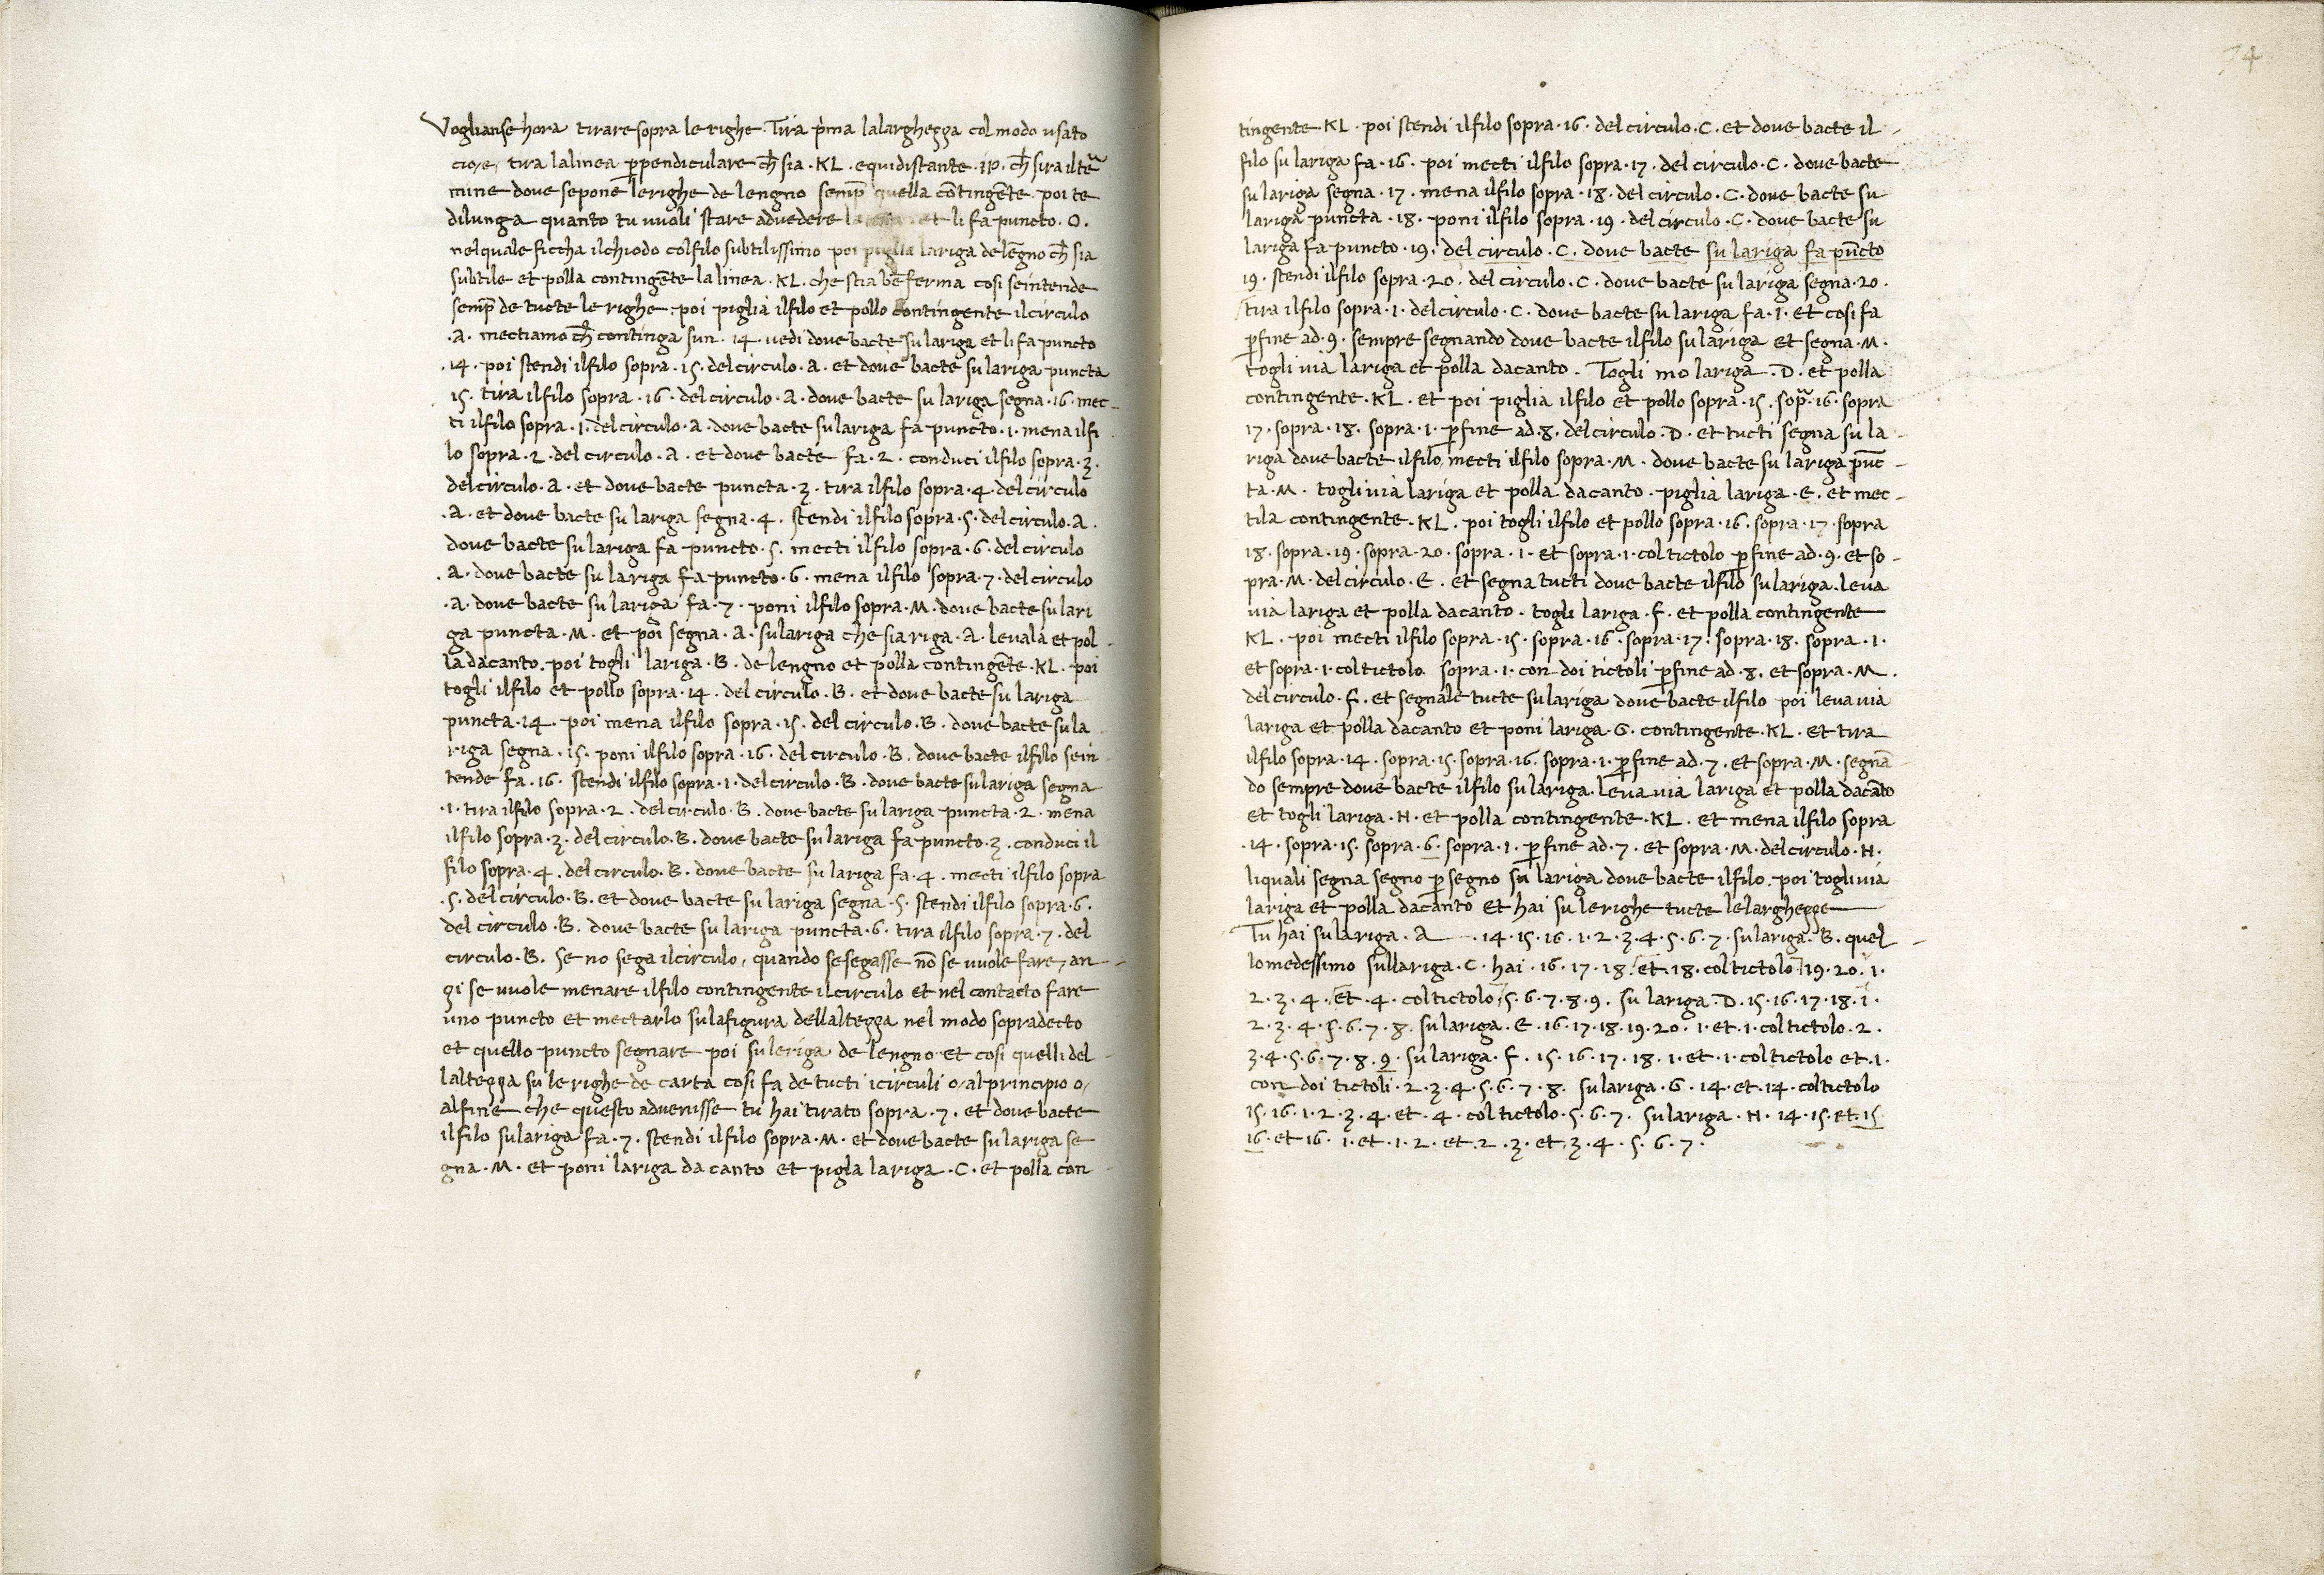 Voglianse hora tirare sopra le righe. Tira p̀ma lalarghezza col modo usato
cio/e/ tira lalinea p̱pendiculare ch̄ sia .KL. equidistante .IP. ch̄ sira ilteᷓ
mine dove sepone lerighe de lengno semp̄ quella co̅tinge̅te. poi te
dilunga quanto tu vuoli stare advedere et li fa puncto .O.
nelquale ficcha ilchiodo colfilo subtilissimo poi piglia lariga dele̅gno ch̄ sia
subtile et polla continge̅te lalinea .KL. che stia be̅ ferma cosi seintende
semp̄ de tucte le righe. poi piglia ilfilo et pollo contingente ilcirculo
.A. mectiamo ch̄ continga sun .14. vedi dove bacte su lariga et li fa puncto
.14. poi stendi ilfilo sopra .15. delcirculo .A. et dove bacte su lariga puncta
15. tira ilfilo sopra .16. delcirculo .A. dove bacte su lariga segna .16. mec-
ti ilfilo sopra .1. delcirculo .A. dove bacte sulariga fa puncto .1. mena ilfi
lo sopra .2. del circulo .A. et dove bacte fa .2. conduci ilfilo sopra .3.
delcirculo .A. et dove bacte puncta .3. tira ilfilo sopra .4. delcirculo
.A. et dove bacte su lariga segna .4. stendi ilfilo sopra .5. delcirculo .A.
dove bacte su lariga fa puncto .5. mecti ilfilo sopra .6. del circulo
.A. dove bacte su lariga fa puncto .6. mena ilfilo sopra .7. del circulo
.A. dove bacte su lariga fa .7. poni ilfilo sopra .M. dove bacte su lari
ga puncta .M. et poi segna .A. sulariga che sia riga .A. levala et pol-
la dacanto. poi togli lariga .B. de lengno et polla continge̅te .KL. poi
togli ilfilo et pollo sopra .14. del circulo .B. et dove bacte su lariga
puncta .14. poi mena ilfilo sopra .15. del circulo .B. dove bacte su la
riga segna .15. poni ilfilo sopra .16. del circulo .B. dove bacte ilfilo sein-
tende fa .16. stendi ilfilo sopra .1. delcirculo .B. dove bacte sulariga segna
.1. tira ilfilo sopra .2. delcirculo .B. dove bacte su lariga puncta .2. mena
ilfilo sopra .3. del circulo .B. dove bacte su lariga fa puncto .3. conduci il
filo sopra .4. del circulo .B. dove bacte su lariga fa .4. mecti ilfilo sopra
.5. del circulo .B. et dove bacte su lariga segna .5. stendi ilfilo sopra .6.
del circulo .B. dove bacte su lariga puncta .6. tira ilfilo sopra .7. del
circulo .B. se no sega ilcirculo, quando sesegasse no̅ se vuole fare, an-
zi se vuole menare ilfilo contingente ilcirculo et nel contacto fare
uno puncto et mectarlo sulafigura dellaltezza nel modo sopradecto
et quello puncto segnare poi suleriga de lengno et cosi quelli del-
laltezza su le righe de carta cosi fa de tucti icirculi o/alprincipio o/
alfine che questo advenisse tu hai tirato sopra .7. et dove bacte
ilfilo sulariga fa .7. stendi ilfilo sopra .M. et dove bacte su lariga se
gna .M. et poni lariga da canto et pigla lariga .C. et polla con-
74
tingente .KL. poi stendi ilfilo sopra .16. del circulo .C. et dove bacte il-
filo su lariga fa .16. poi mecti ilfilo sopra .17. del circulo .C. dove bacte
su lariga segna .17. mena ilfilo sopra .18. del circulo .C. dove bacte su-
lariga puncta .18. poni ilfilo sopra .19. del circulo .C. dove bacte su
lariga fa puncto .19. del circulo .C. dove bacte su lariga fa pu̅cto
19. stendi ilfilo sopra .20. del circulo .C. dove bacte su lariga segna .20.
tira ilfilo sopra .1. delcirculo .C. dove bacte su lariga fa .1. et cosi fa
p̱fine ad .9. sempre segnando dove bacte ilfilo su lariga et segna .M.
togli via lariga et polla dacanto. Togli mo lariga .D. et polla
contingente .KL. et poi piglia ilfilo et pollo sopra .15. sopᷓ. 16. sopra
17. sopra .18. sopra .1. p̱fine ad .8. del circulo .D. et tucti segna su la-
riga dove bacte ilfilo, mecti ilfilo sopra .M. dove bacte su lariga pu̅c-
ta .M. togli via lariga et polla dacanto. piglia lariga .E. et mec-
tila contingente .KL. poi togli ilfilo et pollo sopra .16. sopra .17. sopra
18. sopra .19. sopra .20. sopra .1. et sopra .1. col tictolo p̱fine ad .9. et so-
pra .M. del circulo .E. et segna tucti dove bacte ilfilo su lariga. leva
via lariga et polla dacanto. togli lariga .F. et polla contingente
KL. poi mecti ilfilo sopra .15. sopra .16. sopra .17. sopra .18. sopra .1.
et sopra .1. coltictolo sopra .1. con doi tictoli p̱fine ad .8. et sopra .M.
del circulo .F. et segnale tucte su lariga dove bacte ilfilo poi leva via
lariga et polla dacanto et poni lariga .G. contingente .KL. et tira
ilfilo sopra .14. sopra .15. sopra .16. sopra .1. p̱fine ad .7. et sopra .M. segna̅-
do sempre dove bacte ilfilo su lariga. leva via lariga et polla daca̅to
et togli lariga .H. et polla contingente .KL. et mena ilfilo sopra
.14. sopra .15. sopra .6. sopra .1. p̱fine ad .7. et sopra .M. delcirculo .H.
liquali segna segno p̱ segno su lariga dove bacte ilfilo. poi togli via
lariga et polla dacanto et hai su lerighe tucte lelarghezze
Tu hai su lariga .A .14.15.16.1.2.3.4.5.6.7. su lariga .B. quel-
lomedessimo sullariga .C. hai .16.17.18. et .18. col tictolo 19.20.1.
2.3.4. et .4. coltictolo .5.6.7.8.9. su lariga .D. 15.16.17.18.1.
2.3.4.5.6.7.8. su lariga .E. 16.17.18.19.20. 1. et .1. col tictolo .2.
3.4.5.6.7.8.9. su lariga .F. 15.16.17.18.1. et .1. col tictolo et .1.
con doi tictoli .2.3.4.5.6.7.8. su lariga .G. 14. et .14. coltictolo
15.16.1.2.3.4. et .4. col tictolo .5.6.7. su lariga .H. 14.15. et .15
16. et 16. 1. et .1.2. et .2.3. et .3.4.5.6.7.